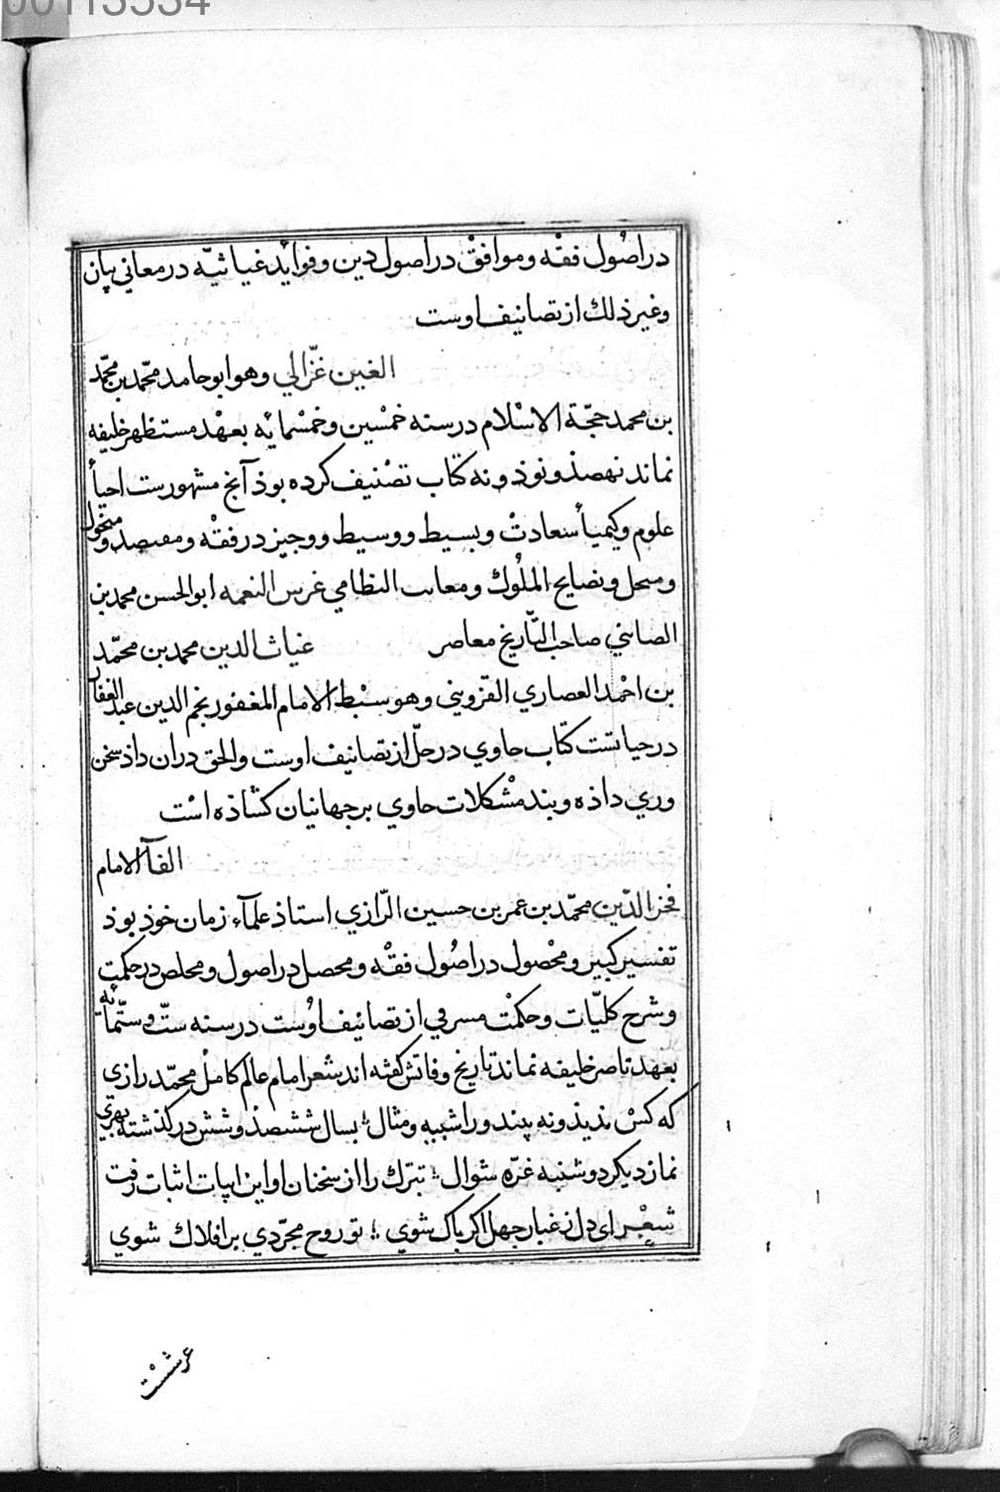 00113534
در اصُول فقْه و موافقْ در اصول دین و فوایْد غیاثیّه در معاني بیان
و غیر ذلك از تصانیف اوست
الغین غزّالي وهو ابو حامد محمّد بن محمّد
بن محمد حجّة الاسْلام در سنه خمْسین و خمْسمایْه بعهْد مستظهر خلیفه
نماند نهصذ و نوذ و نه کتاب تصْنیف کرده بوذ آنچ مشهورست احیأ
علوم و کیمیأ سعادتْ و بسیط و وسیط و وجیز در فقْه و
و نصایح الملُوك و النظامي غرس النعمه ابو الحسن محمد بن
الصابي صاحب التّاریخ معاصر غیاث الدین محمد بن محمّد
بن احْمد العصاري القزویني وهو سبْط الامام المغفور نجم الدین عبد الغفار
در حیاتست کتاب حاوي در حلّ از تصانیف اوست والحق دران داذ سخن
وري داذه و بند مشْکلات حاوي بر جهانیان کشاذه اسْت
الفآ الامام
فخر الدّین محمّد بن عمر بن حسین الرّازي استاذ علمآء زمان خوذ بوذ
تفسیر کبیر و محْصول در اصُول فقْه و محصل در اصول و ملخص در حکمت
و شرح کلیّات و حکمْت مسرقي از تصانیف اوست در سنه ستّ و ستّمایْه
بعهد ناصر خلیفه نماند تاریخ وفاتش گفته اند شعر امام عالم کاملْ محمّد رازي
که کسْ ندیذ و نه بیند ورا شبیه و مثال ؛ بسال ششصذ و شش درکذشته بهري
نماز دیکر دوشنبه غرّه شوال ؛ تبرّك را از سخنان او این ابیات اثبات رفت
شعْر ای دل از غبار جهل اکر پاك شوي ؛ تو روح مجرّدي بر افلاك شوي
عرشسْت